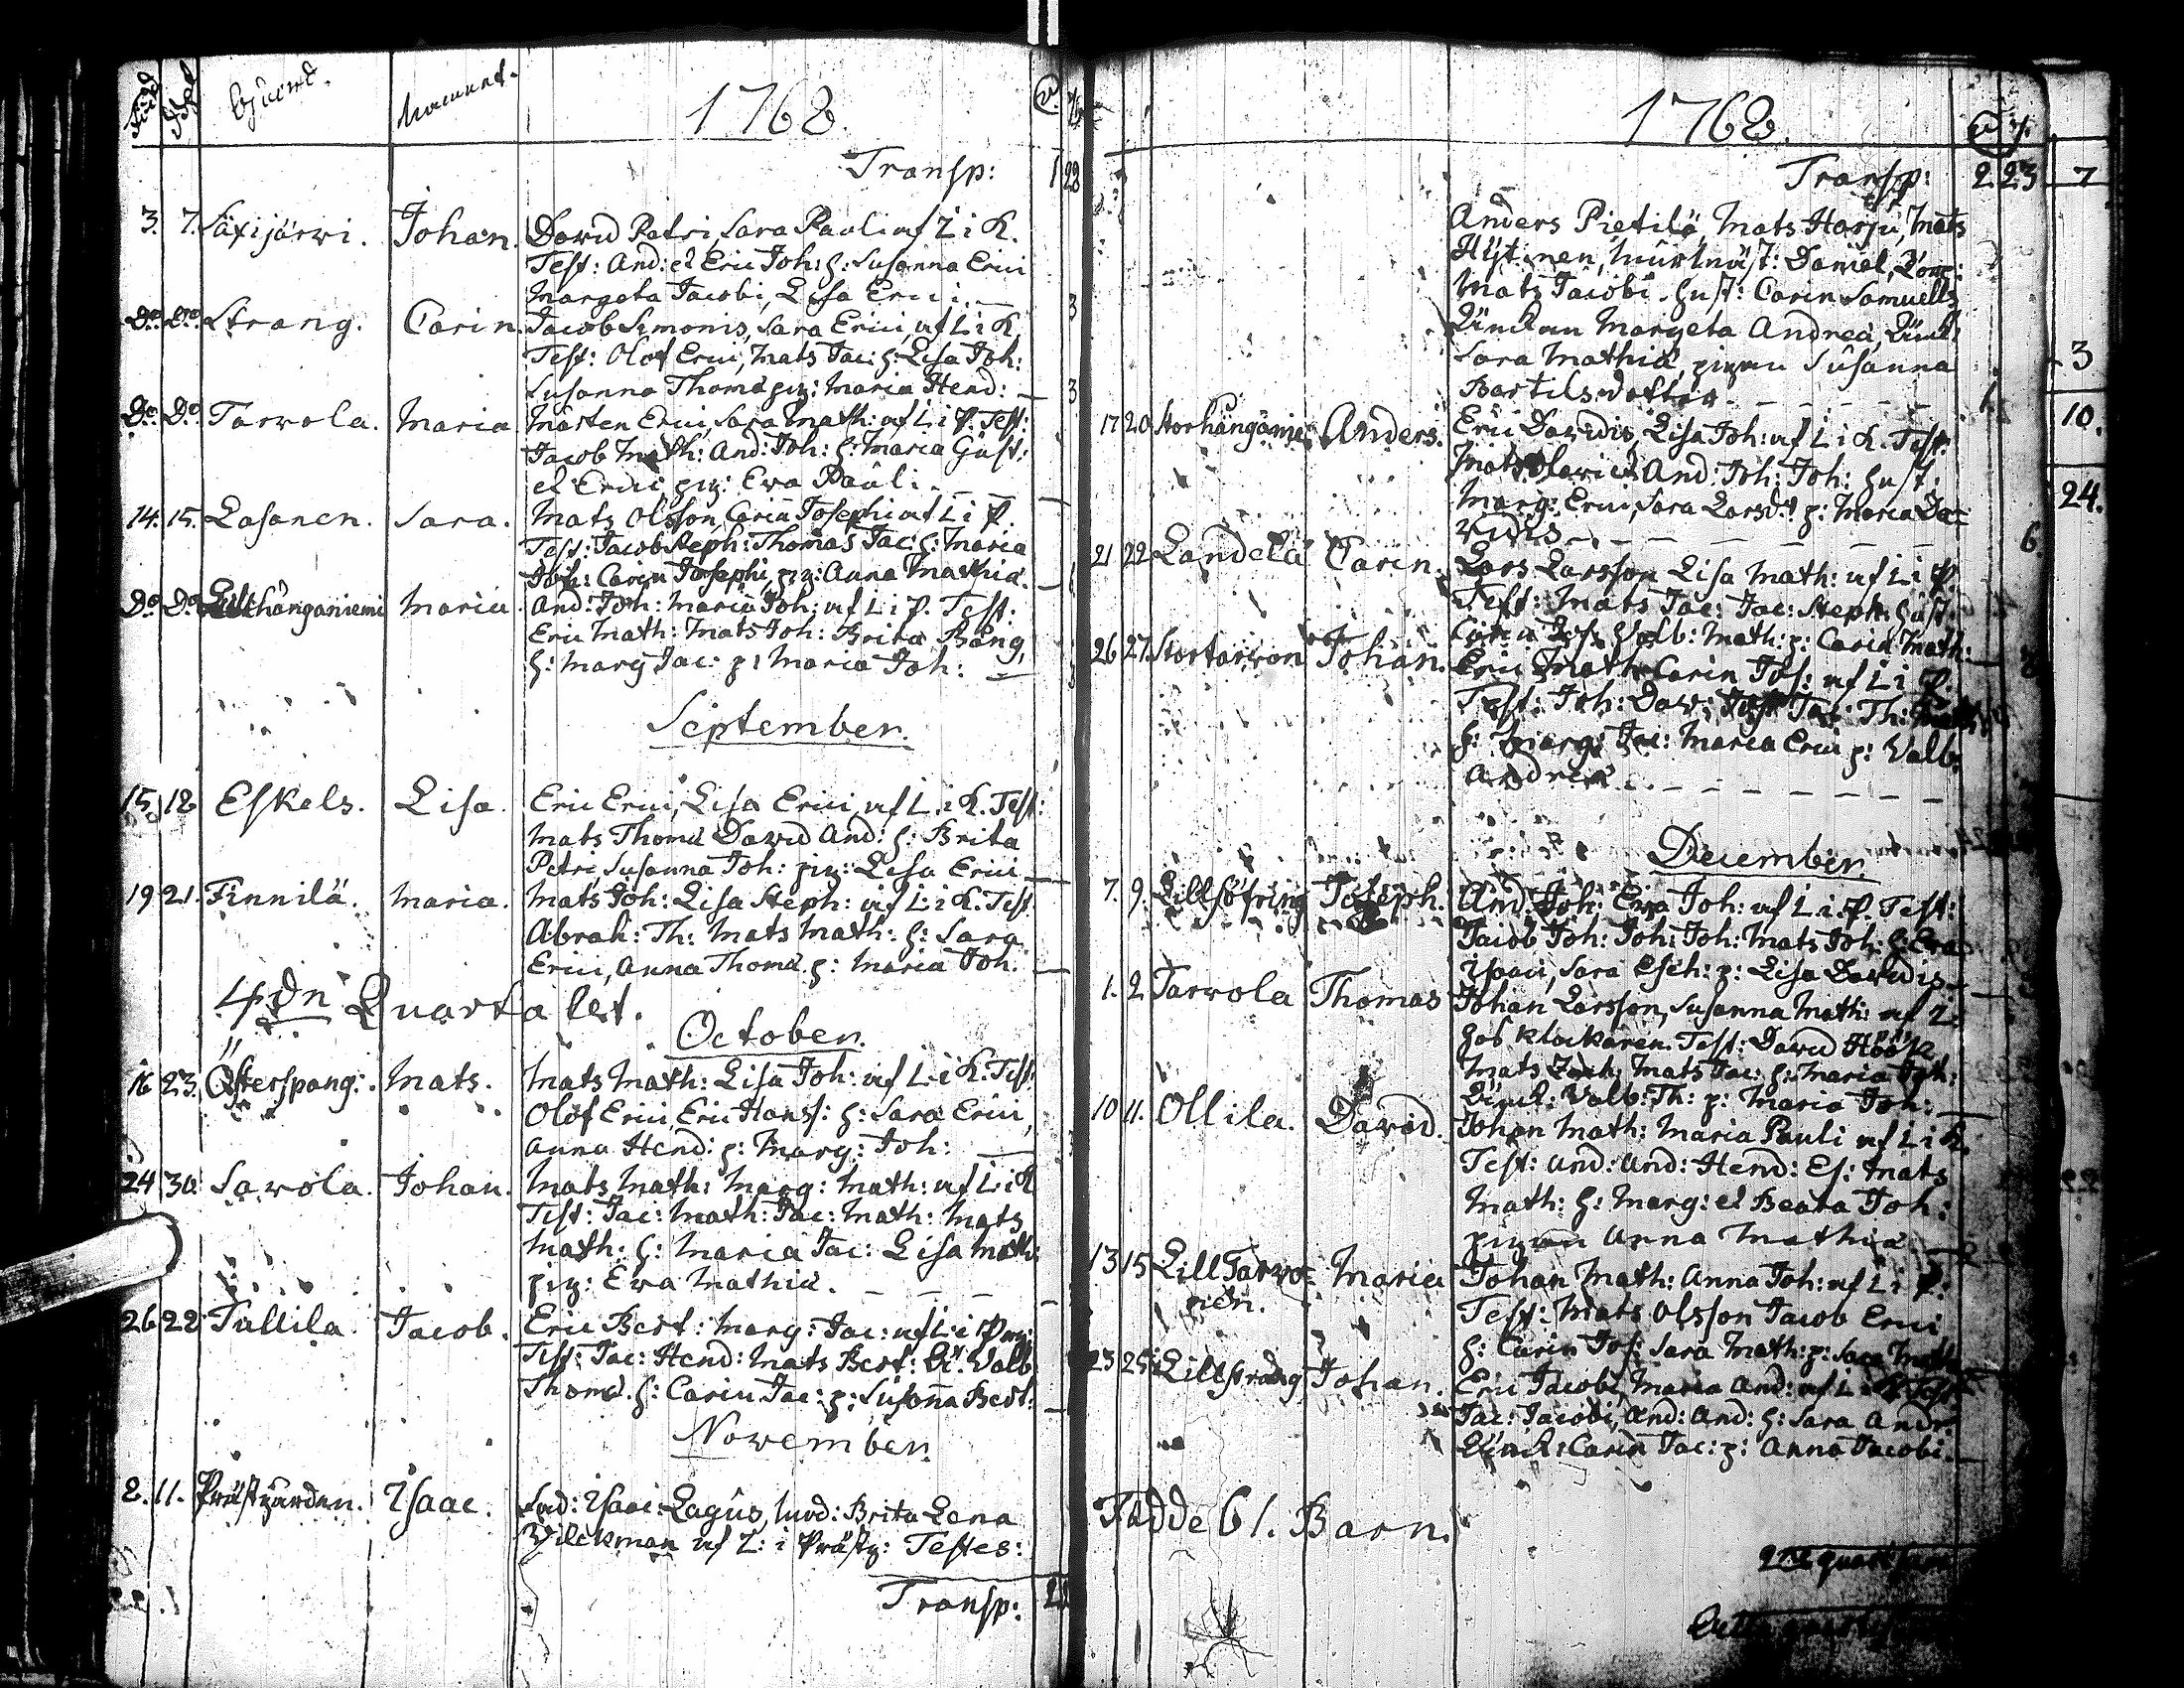 Född Döpt Hemvist. Namnet. 1768.
Transp: 1 28
3. 7. Säxijärwi. Johan. David Petri, Sara Pauli af L i K.
Test: And: et Eric Joh: h: Susanna Erici
Margeta Jacobi, Lisa Erici. 3
Do. Do. Strang. Carin. Jacob Simonis, Sara Erici, af L i K.
Test: Olof Erici, Mats Jac: h: Lisa Joh:
Susanna Thomæ pig: Maria Hend: 3
Do. Do. Tarvola. Maria Mårten Erici, Sara Math: af L i P. Test:
Jacob Math: And: Joh: h: Maria Gust:
et Erici pig: Eva Pauli.
14. 15. Lasanen. Sara. Mats Olsson, Carin Josephi af L i P.
Test: Jacob Steph: Thomas Jac: h: Maria
Joh: Carin Josephi, pig: Anna Mathiæ.
Do. Do. Lillhänganiemi Maria. And: Joh: Maria Joh: af L i P. Test:
Eric Math: Mats Joh: Brita Bång,
h: Marg Jac: p: Maria Joh:
September.
15 18 Eskels. Lisa. Eric Erici, Lisa Erici, af L i K. Test:
Mats Thomæ David And: h: Brita
Petri, Susanna Joh: pig: Lisa Erici
19 21. Finnilä. Maria. Mats Joh: Lisa Steph: af L i K. Test
Abrah: Th: Mats Math: h: Sara
Erici, Anna Thomæ p: Maria Joh:
4dn Quartalet.
October.
16 23. Österspong: Mats. Mats Math: Lisa Joh: af L i K. Test
Olof Erici, Eric Hans: h: Sara Erici,
Anna Hend: p: Marg: Joh:
24 30. Savola. Johan. Mats Math: Marg: Math: af L i K
Test: Jac: Math: Jac: Math: Mats
Math: h: Maria Jac: Lisa Math:
pig: Eva Mathiæ.
26 28 Tullila. Jacob. Eric Bert: Marg: Jac: af L i P
Test: Jac: Hend: Mats Bert: Valb
Thomæ. h: Carin Jac: p: Susanna Bert:
November.
8. 11. Prästgården. Isaac. Isaac: Lagus, Brita Lena
Wilckman af L: i Prästg: Testes:
Transp:
1768.
Transp: 2 23 7
Anders Pietilä, Mats Harju, Mats
Hyttinen, Daniel
Mats Jacobi. hust: Carin Samuells
Änckan Margeta Andreæ, Änck
Sara Mathiæ, pigan Susanna 3
Bartilsdotter
17 20. Storhänganiemi Anders. Eric Davidis, Lisa Joh: af L i K. Test: 10.
Mats And: Joh: Joh: hust:
Marg: Erici, Sara Larsd:r p: Maria Da= 24.
vidis 6.
21 22 Landela Carin. Lars Larsson Lisa Math: af L i P
Test: Mats Jac: Jac: Steph: hust
Valb: Math: p: Carin Math:
26 27. Stortarvon Johan. Eric Math: Carin Jos: af L i P.
Test: Joh: Dav: Jac: Th:
h: Marg: Jac: Maria Erici p: Valb:
Andreæ.
December.
7. 9. Lillsöfring Joseph. And: Joh: Eva Joh: af L i P. Test:
Jacob Joh: Joh: Joh: Mats Joh: h: Eva
Isaaci, Sara Esch: p: Lisa Davidis.
1. 2 Tarvola Thomas Johan Larsson, Susanna Math: af L
hos klockaren. Test: David Höök
Mats Mats Jac: h: Maria Joh:
Änck: Valb: Th: p: Maria Joh:
10 11. Ollila. David. Johan Math: Maria Pauli af L i K.
Test: And: And: Hend: Es: Mats
Math: h: Marg: et Beata Joh:
pigan Anna Mathiæ.
13 15 Lill Tarvo= Maria Johan Math: Anna Joh: af L i P.
nen. Test: Mats Olsson Jacob Erici
h: Carin Jos: Sara Math: p: Sara Math
23 25 Lillstrang Johan. Eric Jacobi, Maria And: af L i
Jac: Jacobi, And: And: h: Sara Andr:
Änck: Carin Jac: p: Anna Jacobi.
Födde 61. Barn.